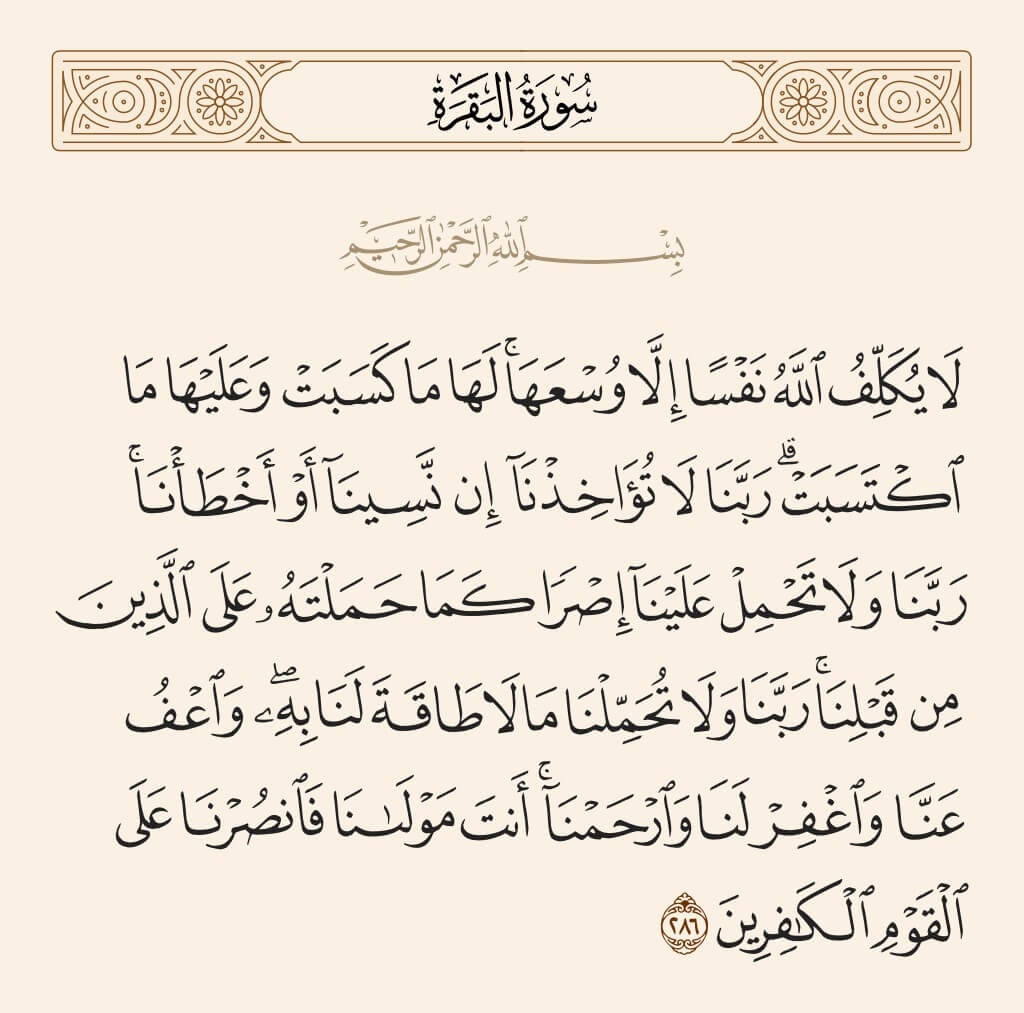 سُورَةُ البَقَرَةِ
بِسْمِ ٱللَّهِ ٱلرَّحْمَٰنِ ٱلرَّحِيمِ
لَا يُكَلِّفُ ٱللَّهُ نَفْسًا إِلَّا وُسْعَهَاۚ لَهَا مَا كَسَبَتْ وَعَلَيْهَا مَا
ٱكْتَسَبَتْۗ رَبَّنَا لَا تُؤَاخِذْنَآ إِن نَّسِينَآ أَوْ أَخْطَأْنَاۚ
رَبَّنَا وَلَا تَحْمِلْ عَلَيْنَآ إِصْرًا كَمَا حَمَلْتَهُۥ عَلَى ٱلَّذِينَ
مِن قَبْلِنَاۚ رَبَّنَا وَلَا تُحَمِّلْنَا مَا لَا طَاقَةَ لَنَا بِهِۦۖ وَٱعْفُ
عَنَّا وَٱغْفِرْ لَنَا وَٱرْحَمْنَآۚ أَنتَ مَوْلَىٰنَا فَٱنصُرْنَا عَلَى
ٱلْقَوْمِ ٱلْكَٰفِرِينَ ٢٨٦